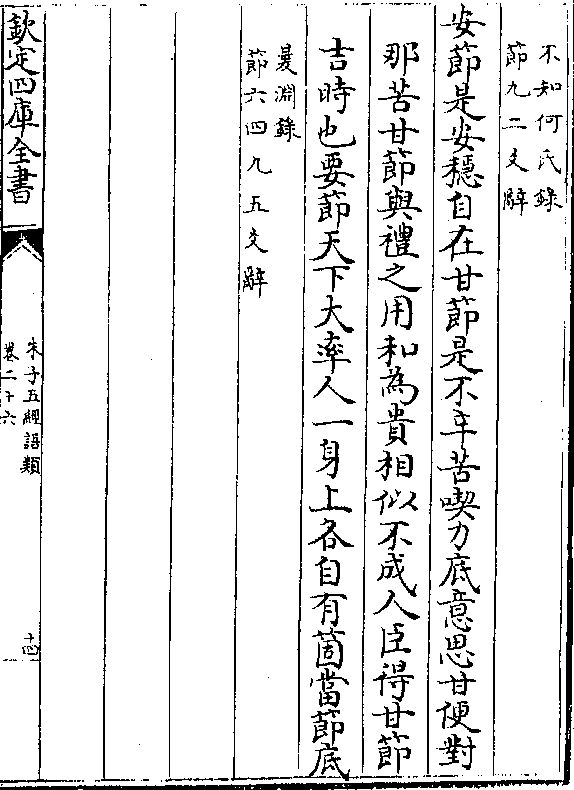 不知何氏錄
節九二爻辭
安節是安穩自在甘節是不辛苦喫力底意思甘便對
那苦甘節與禮之用和為貴相似不成人臣得甘節
吉時也要節天下大率人一身上各自有箇當節底
㬊淵錄
節六四九五爻辭
欽定四庫全書
朱子五經語類
卷二十六
十四